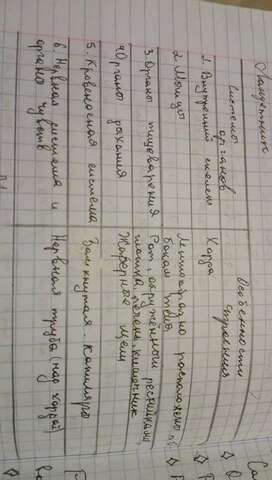 Ланцетник
Системы органов
Особенности строения
1. Внутренний скелет
Хорда
2. Мышцы
Лентообразно расположены по бокам тела
3. Органы пищеварения
Рот, окружённый ресничками, глотка, печень, кишечник
4 Органы дыхания
Жаберные щели
5. Кровеносная система
Замкнутая - капилляры
6. Нервная система и органы чувств
Нервная трубка (над хордой)